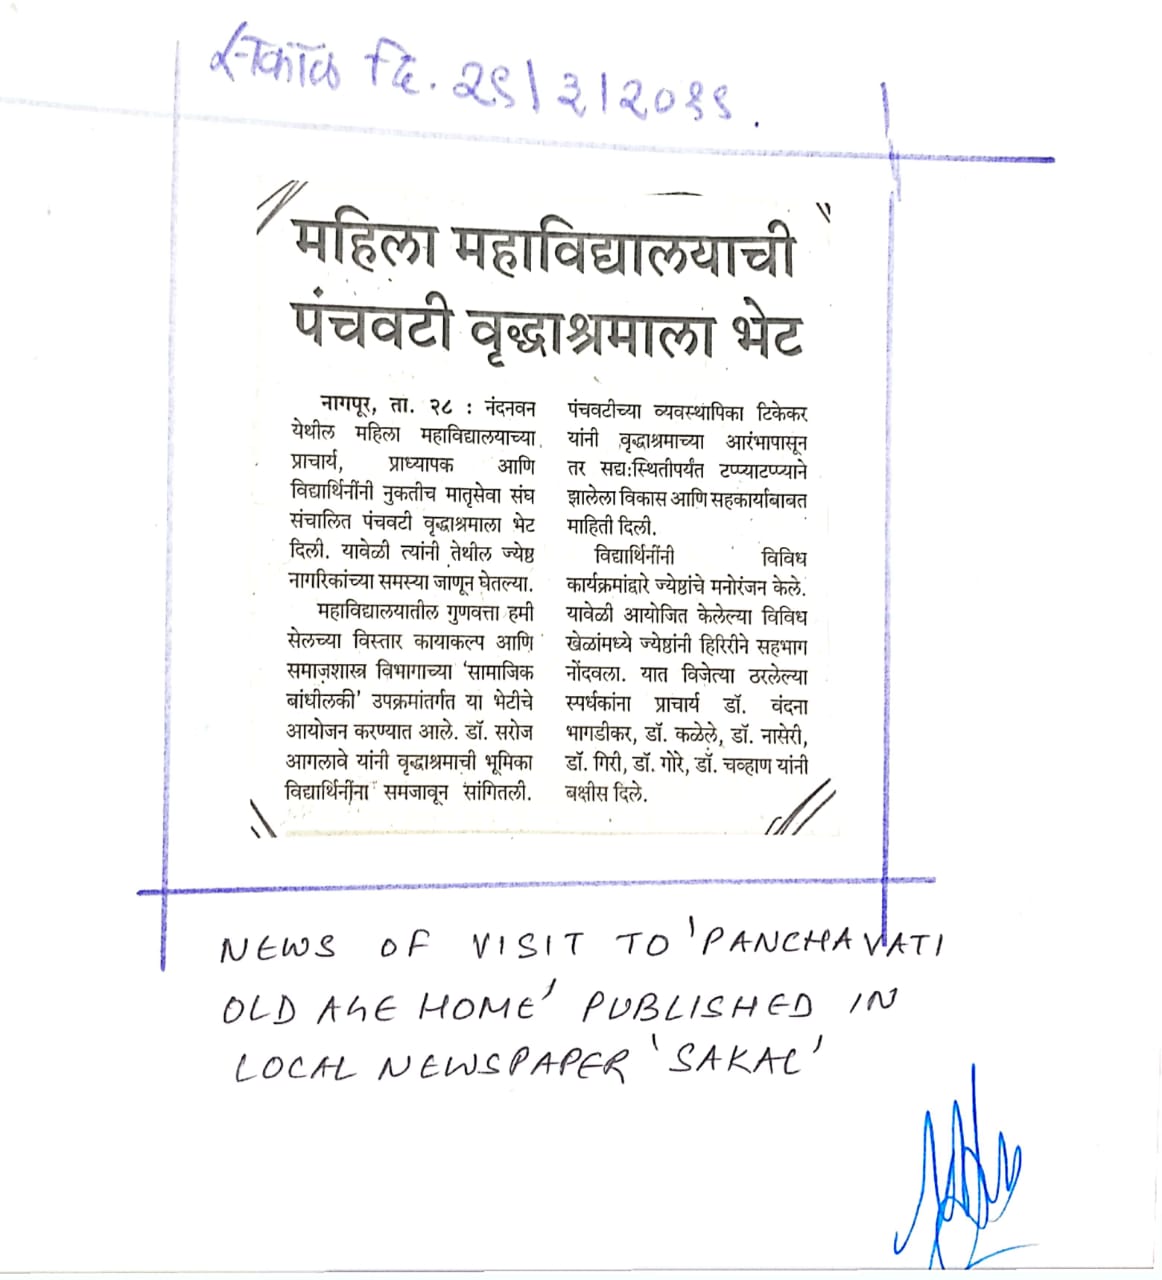 सकाळ दि. २९/३/२०१९.
महिला महाविद्यालयाची
पंचवटी वृद्धाश्रमाला भेट
नागपूर, ता. २८ : नंदनवन
येथील महिला महाविद्यालयाच्या
प्राचार्य, प्राध्यापक आणि
विद्यार्थिनींनी नुकतीच मातृसेवा संघ
संचालित पंचवटी वृद्धाश्रमाला भेट
दिली. यावेळी त्यांनी तेथील ज्येष्ठ
नागरिकांच्या समस्या जाणून घेतल्या.
महाविद्यालयातील गुणवत्ता हमी
सेलच्या विस्तार कायाकल्प आणि
समाजशास्त्र विभागाच्या ‘सामाजिक
बांधीलकी’ उपक्रमांतर्गत या भेटीचे
आयोजन करण्यात आले. डॉ. सरोज
आगलावे यांनी वृद्धाश्रमाची भूमिका
विद्यार्थिनींना समजावून सांगितली.
पंचवटीच्या व्यवस्थापिका टिकेकर
यांनी वृद्धाश्रमाच्या आरंभापासून
तर सद्य:स्थितीपर्यंत टप्प्याटप्प्याने
झालेला विकास आणि सहकार्याबाबत
माहिती दिली.
विद्यार्थिनींनी विविध
कार्यक्रमांद्वारे ज्येष्ठांचे मनोरंजन केले.
यावेळी आयोजित केलेल्या विविध
खेळांमध्ये ज्येष्ठांनी हिरिरीने सहभाग
नोंदवला. यात विजेत्या ठरलेल्या
स्पर्धकांना प्राचार्य डॉ. वंदना
भागडीकर, डॉ. कळेले, डॉ. नासेरी,
डॉ. गिरी, डॉ. गोरे, डॉ. चव्हाण यांनी
बक्षीस दिले.
NEWS OF VISIT TO 'PANCHAVATI
OLD AGE HOME' PUBLISHED IN
LOCAL NEWSPAPER 'SAKAL'